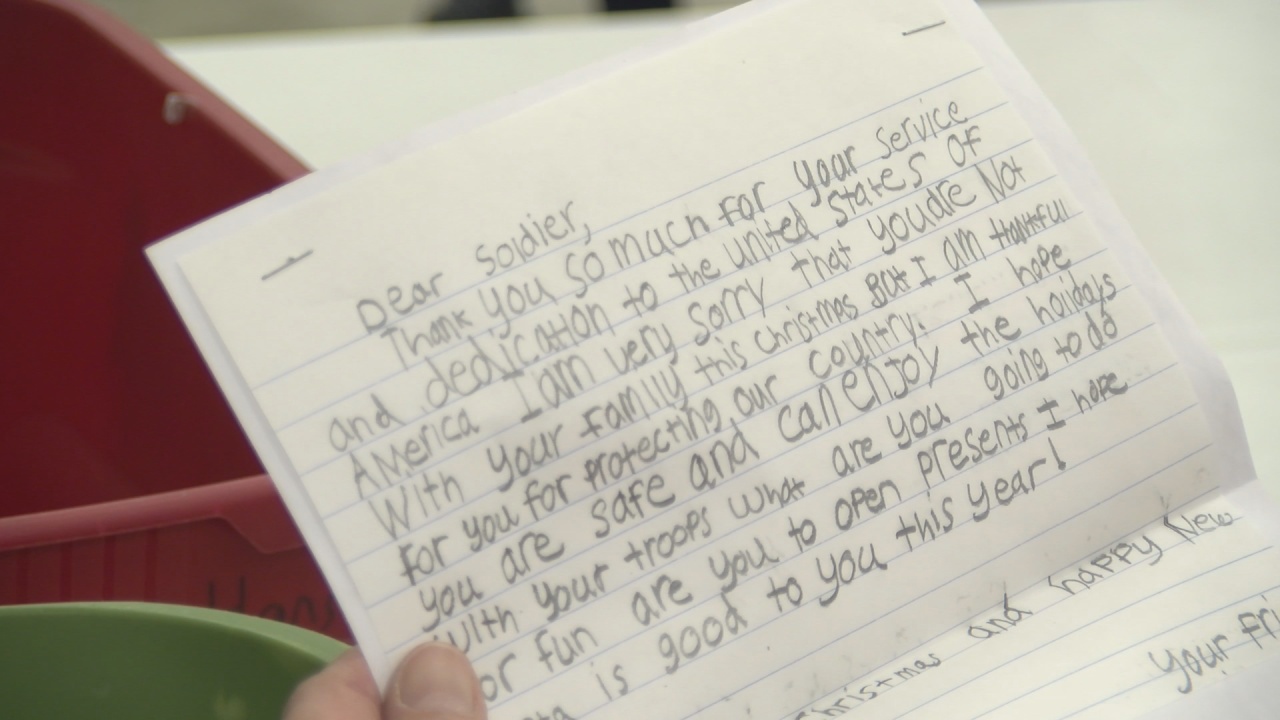 Dear Soldier,
Thank you so much for your service
and dedication to the united states of
America I am very sorry that you are Not
With your family this christmas But I am thankful
for you for protecting our country. I hope
you are safe and can enjoy the holidays
with your troops what are you going to do
for fun are you to open presents I hope
is good to you this year!
Christmas and happy New
your Fri